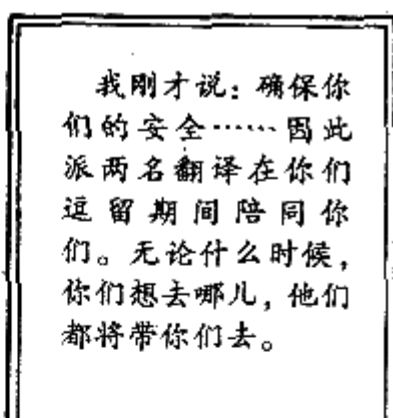 我刚才说：确保你
们的安全……因此
派两名翻译在你们
逗留期间陪同你
们。无论什么时候，
你们想去哪儿，他们
都将带你们去。